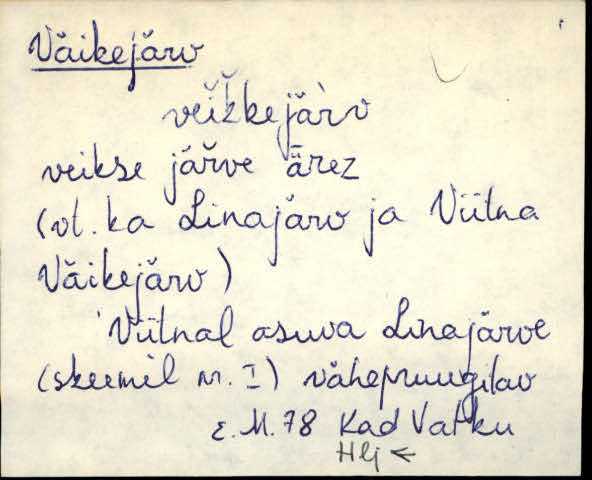 Väikejärv
vei̮kkejär̀v
veikse jär̆ve ä̆rez
(vt. ka Linajärv ja Viitna
Väikejärv)
Viitnal asuva Linajärve
(skeemil nr. I) vähepruugitav
E. M. 78 Kad Vatku
Hlj ←